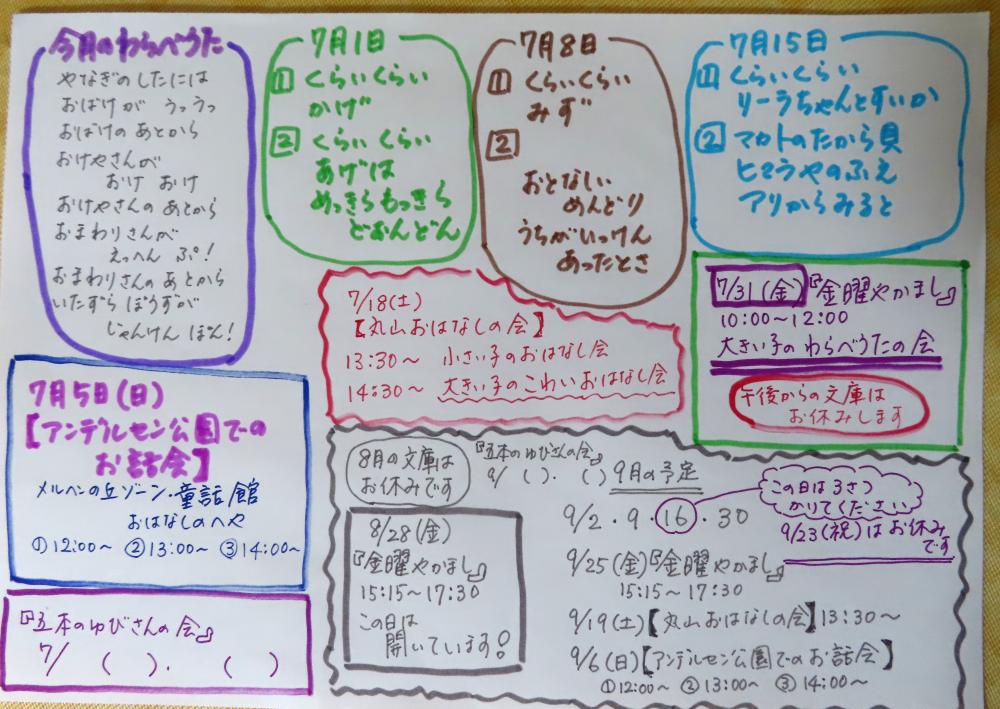 今月のわらべうた
やなぎのしたには
おばけが うっうっ
おばけのあとから
おけやさんが
おけ おけ
おけやさんのあとから
おまわりさんが
えっへん ぷ!
おまわりさんのあとから
いたずらぼうずが
じゃんけんぽん!
7月1日
1 くらいくらい
かげ
2 くらいくらい
あげは
めっきらもっきら
どおんどん
7月8日
1 くらいくらい
みず
2
おとなしい
めんどり
うちがいっけん
あったとさ
7月15日
1 くらいくらい
リーラちゃんとすいか
2 マカトのたから貝
ヒマラヤのふえ
アリからみると
7月5日(日)
【アンデルセン公園での
お話会】
メルヘンの丘ゾーン・童話館
おはなしのへや
①12:00~ ②13:00~ ③14:00~
『五本のゆびさんの会』
7/ ( )・ ( )
7/18(土)
【丸山おはなしの会】
13:30~ 小さい子のおはなし会
14:30~ 大きい子のこわいおはなし会
7/31(金)『金曜やかまし』
10:00~12:00
大きい子のわらべうたの会
午後からの文庫は
お休みします
8月の文庫は
お休みです
8/28(金)
『金曜やかまし』
15:15~17:30
この日は
開いています!
『五本のゆびさんの会』
9/ ( )・( )
9月の予定
9/2・9・16・30
この日は3さつ
かりてください
9/23(祝)はお休み
です
9/25(金)『金曜やかまし』
15:15~17:30
9/19(土)【丸山おはなしの会】13:30~
9/6(日)【アンデルセン公園でのお話会】
①12:00~ ②13:00~ ③14:00~